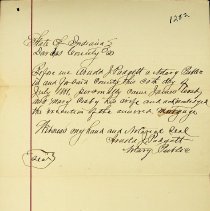 1282
State of Indiana }
Daviess County } SS
Before me Arnold J. Padgett a Notary Public
in and for said County this
July 1881, personally came James
and Mary his wife and acknowledged
the execution of the annexed mortgage.
Witness my hand and Notarial Seal
Arnold J. Padgett
Notary Public
Seal